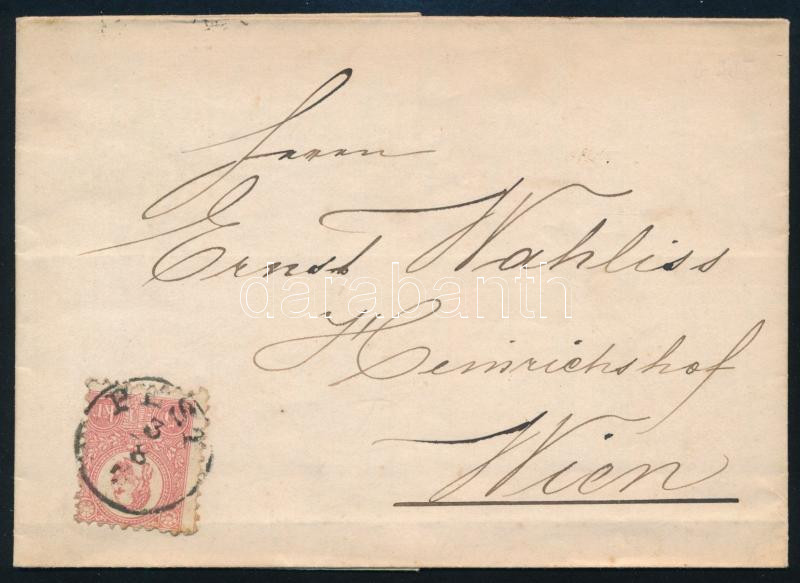 Herrn
Ernst Wahliss
Heinrichshof
Wien
PEST
databanth